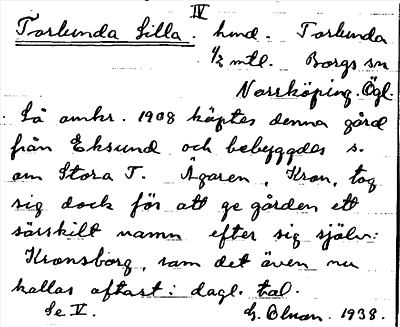 IV
Torlunda Lilla. hmd. Torlunda
1/2 mtl. Borgs sn
Norrköping. Ögl.
Så omkr. 1908 köptes denna gård
från Eksund och bebyggdes s.
om Stora T. Ägaren, Kron, tog
sig dock för att ge gården ett
särskilt namn efter sig själv:
Kronsborg, som det även nu
kallas oftast i dagl. tal.
Se V. 1938.